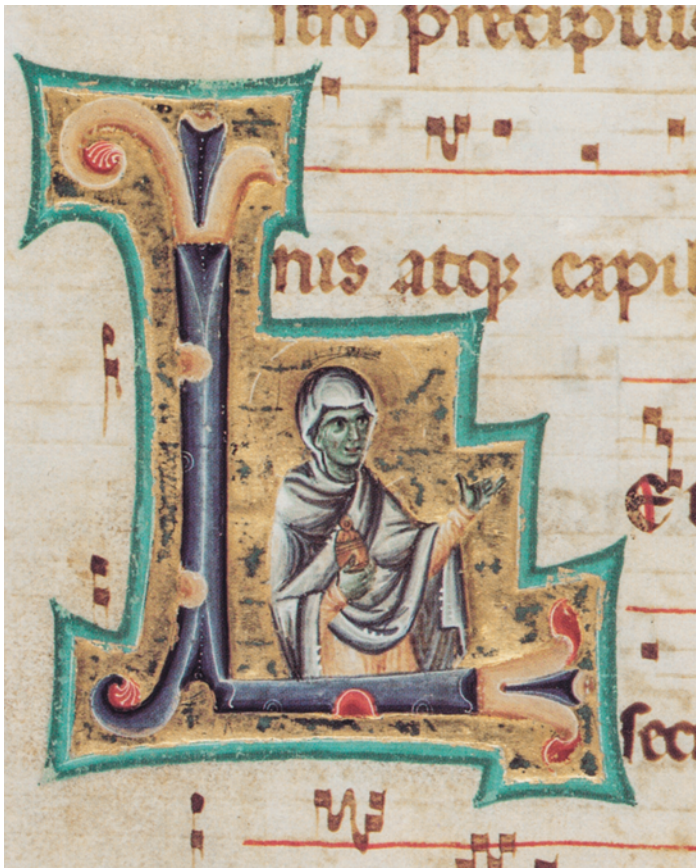 stro precipuu
nis atq; capil
L
e
sec